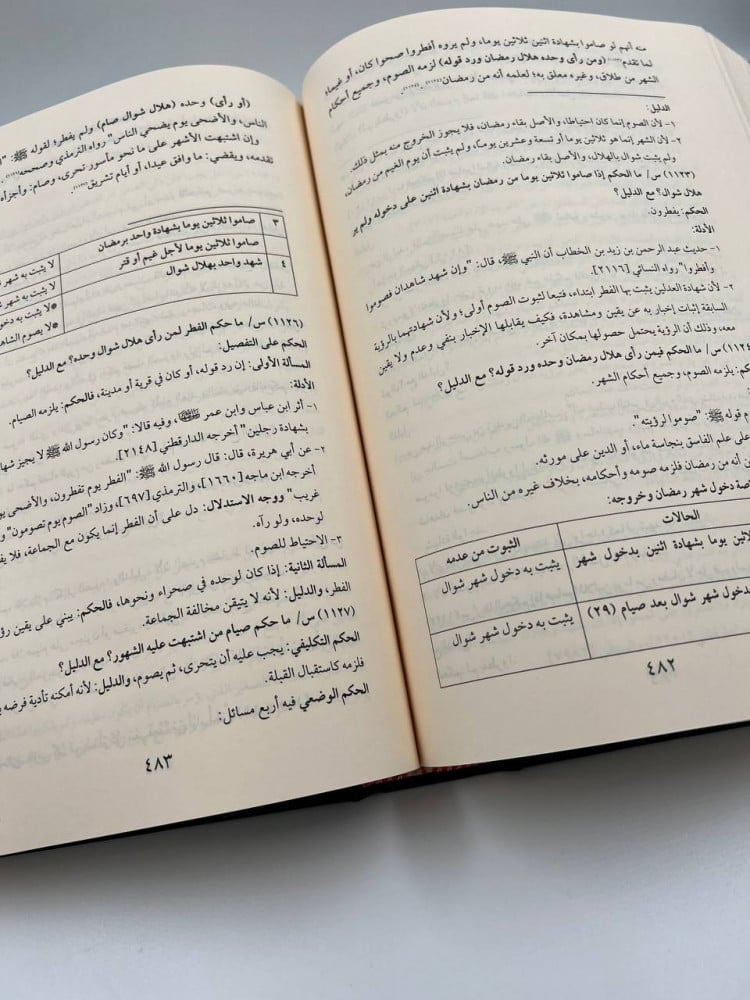 منه أنهم لو صاموا بشهادة اثنين ثلاثين يوما، ولم يروه أفطروا صحوا كان، أو غيما
لما تقدم (ومن رأى وحده هلال رمضان ورد قوله) لزمه الصوم، وجميع أحكام
الشهر من طلاق، وغيره معلق به؛ لعلمه أنه من رمضان
الدليل:
١- لأن الصوم إنما كان احتياطا، والأصل بقاء رمضان، فلا يجوز الخروج منه بمثل ذلك.
٢- لأن الشهر إنما هو ثلاثين يوما أو تسعة وعشرين يوماً، ولم يثبت أن يوم الغيم من رمضان،
ولم يثبت شوال بالهلال، والأصل بقاء رمضان.
(١١٢٣) س/ ما الحكم إذا صاموا ثلاثين يوما من رمضان بشهادة اثنين على دخوله ولم ير
هلال شوال؟ مع الدليل؟
الحكم: يفطرون.
الأدلة:
١- حديث عبد الرحمن بن زيد بن الخطاب أن النبي ﷺ، قال: "وإن شهد شاهدان فصوموا
وأفطروا" رواه النسائي [٢١١٦].
٢- لأن شهادة العدلين يثبت بها الفطر ابتداء، فتبعا لثبوت الصوم أولى؛ ولأن شهادتهما بالرؤية
السابقة إثبات إخبار به عن يقين ومشاهدة، فكيف يقابلها الإخبار بنفي وعدم ولا يقين
معه، وذلك أن الرؤية يحتمل حصولها بمكان آخر.
(١١٢٤ س/ ما الحكم فيمن رأى هلال رمضان وحده ورد قوله؟ مع الدليل؟
كم: يلزمه الصوم، وجميع أحكام الشهر.
م قوله ﷺ: "صوموا لرؤيته".
على علم الفاسق بنجاسة ماء، أو الدين على مورثه.
أنه من رمضان فلزمه صومه وأحكامه، بخلاف غيره من الناس.
صة دخول شهر رمضان وخروجه:
الحالات الثبوت من عدمه
ثين يوما بشهادة اثنين بدخول شهر يثبت به دخول شهر شوال
دخول شهر شوال بعد صيام (٢٩) يثبت به دخول شهر شوال
٤٨٢
(أو رأى) وحده (هلال شوال صام) ولم يفطر؛ لقوله ﷺ:
الناس، والأضحى يوم يضحي الناس" رواه الترمذي وصححه
وإن اشتبهت الأشهر على ما نحو مأسور تحرى، وصام؛ وأجزأه
تقدمه، ويقضي: ما وافق عيدا، أو أيام تشريق
٣ صاموا ثلاثين يوما بشهادة واحد برمضان لا يثبت به شهر
صاموا ثلاثين يوما لأجل غيم أو قتر لا يثبت به شهر
٤ شهد واحد بهلال شوال *لا يثبت به دخو
*لا يصوم الشاه
(١١٢٦) س/ ما حكم الفطر لمن رأى هلال شوال وحده؟ مع الدليل؟
الحكم على التفصيل:
المسألة الأولى: إن رد قوله، أو كان في قرية أو مدينة، فالحكم: يلزمه الصيام.
الأدلة:
١- أثر ابن عباس وابن عمر، وفيه قالا: "وكان رسول الله ﷺ لا يجيز شها
بشهادة رجلين" أخرجه الدارقطني [٢١٤٨].
٢- عن أبي هريرة، قال: قال رسول الله ﷺ: "الفطر يوم تفطرون، والأضحى يو
أخرجه ابن ماجه [١٦٦٠]، والترمذي [٦٩٧]، وزاد "الصوم يوم تصومون" و
غريب" ووجه الاستدلال: دل على أن الفطر إنما يكون مع الجماعة، فلا يف
لوحده، ولو رآه.
٣- الاحتياط للصوم.
المسألة الثانية: إذا كان لوحده في صحراء ونحوها، فالحكم: يبني على يقين رؤ
الفطر، والدليل: لأنه لا يتيقن مخالفة الجماعة.
(١١٢٧) س/ ما حكم صيام من اشتبهت عليه الشهور؟ مع الدليل؟
الحكم التكليفي: يجب عليه أن يتحرى، ثم يصوم، والدليل: لأنه أمكنه تأدية فرضه
فلزمه كاستقبال القبلة.
الحكم الوضعي فيه أربع مسائل:
٤٨٣